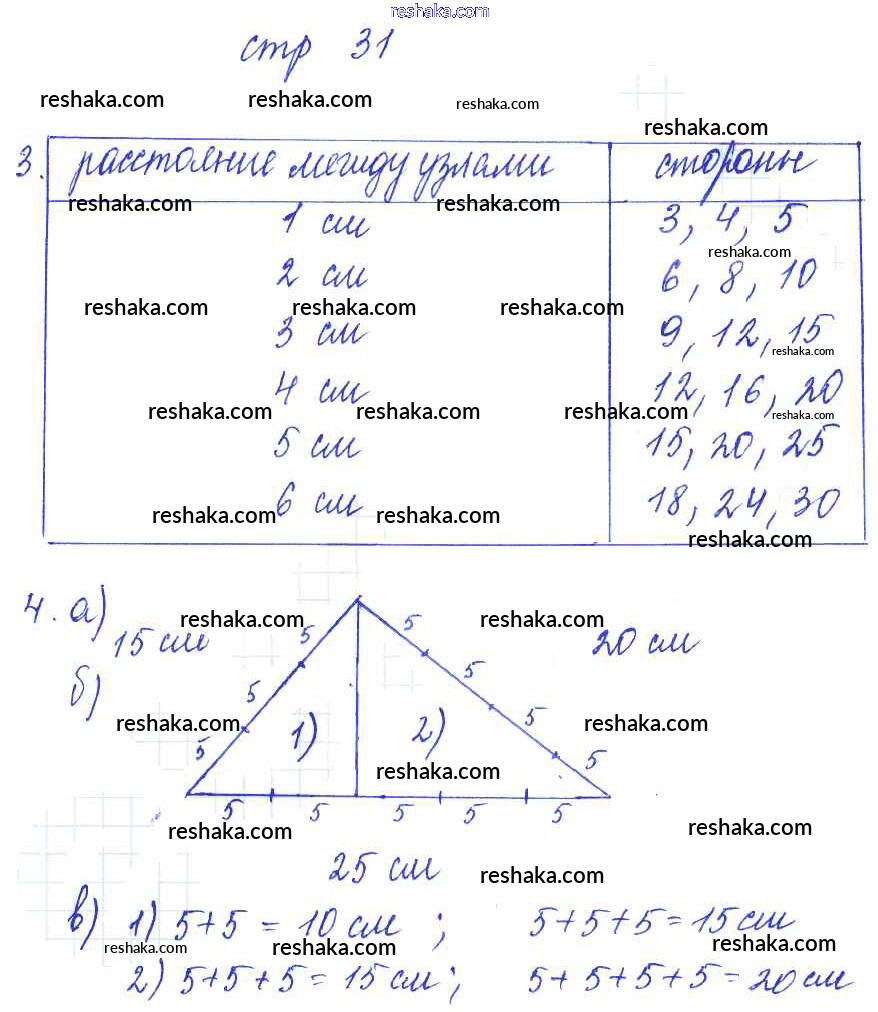 reshaka.com
стр 31
reshaka.com reshaka.com reshaka.com
reshaka.com
3. расстояние между узлами стороны
reshaka.com reshaka.com
1 см 3, 4, 5
reshaka.com
2 см 6, 8, 10
reshaka.com reshaka.com reshaka.com
3 см 9, 12, 15
reshaka.com
4 см 12, 16, 20
reshaka.com reshaka.com reshaka.com reshaka.com
5 см 15, 20, 25
6 см 18, 24, 30
reshaka.com reshaka.com
reshaka.com
4. а)
reshaka.com reshaka.com
15 см 5 5 20 см
б) 5 5
reshaka.com reshaka.com
5 1) 2) 5
5
reshaka.com
5 5 5 5 5
reshaka.com reshaka.com
25 см
reshaka.com
в) 1) 5+5 = 10 см ; 5+5+5 = 15 см
reshaka.com reshaka.com reshaka.com
2) 5+5+5 = 15 см ; 5+5+5+5 = 20 см